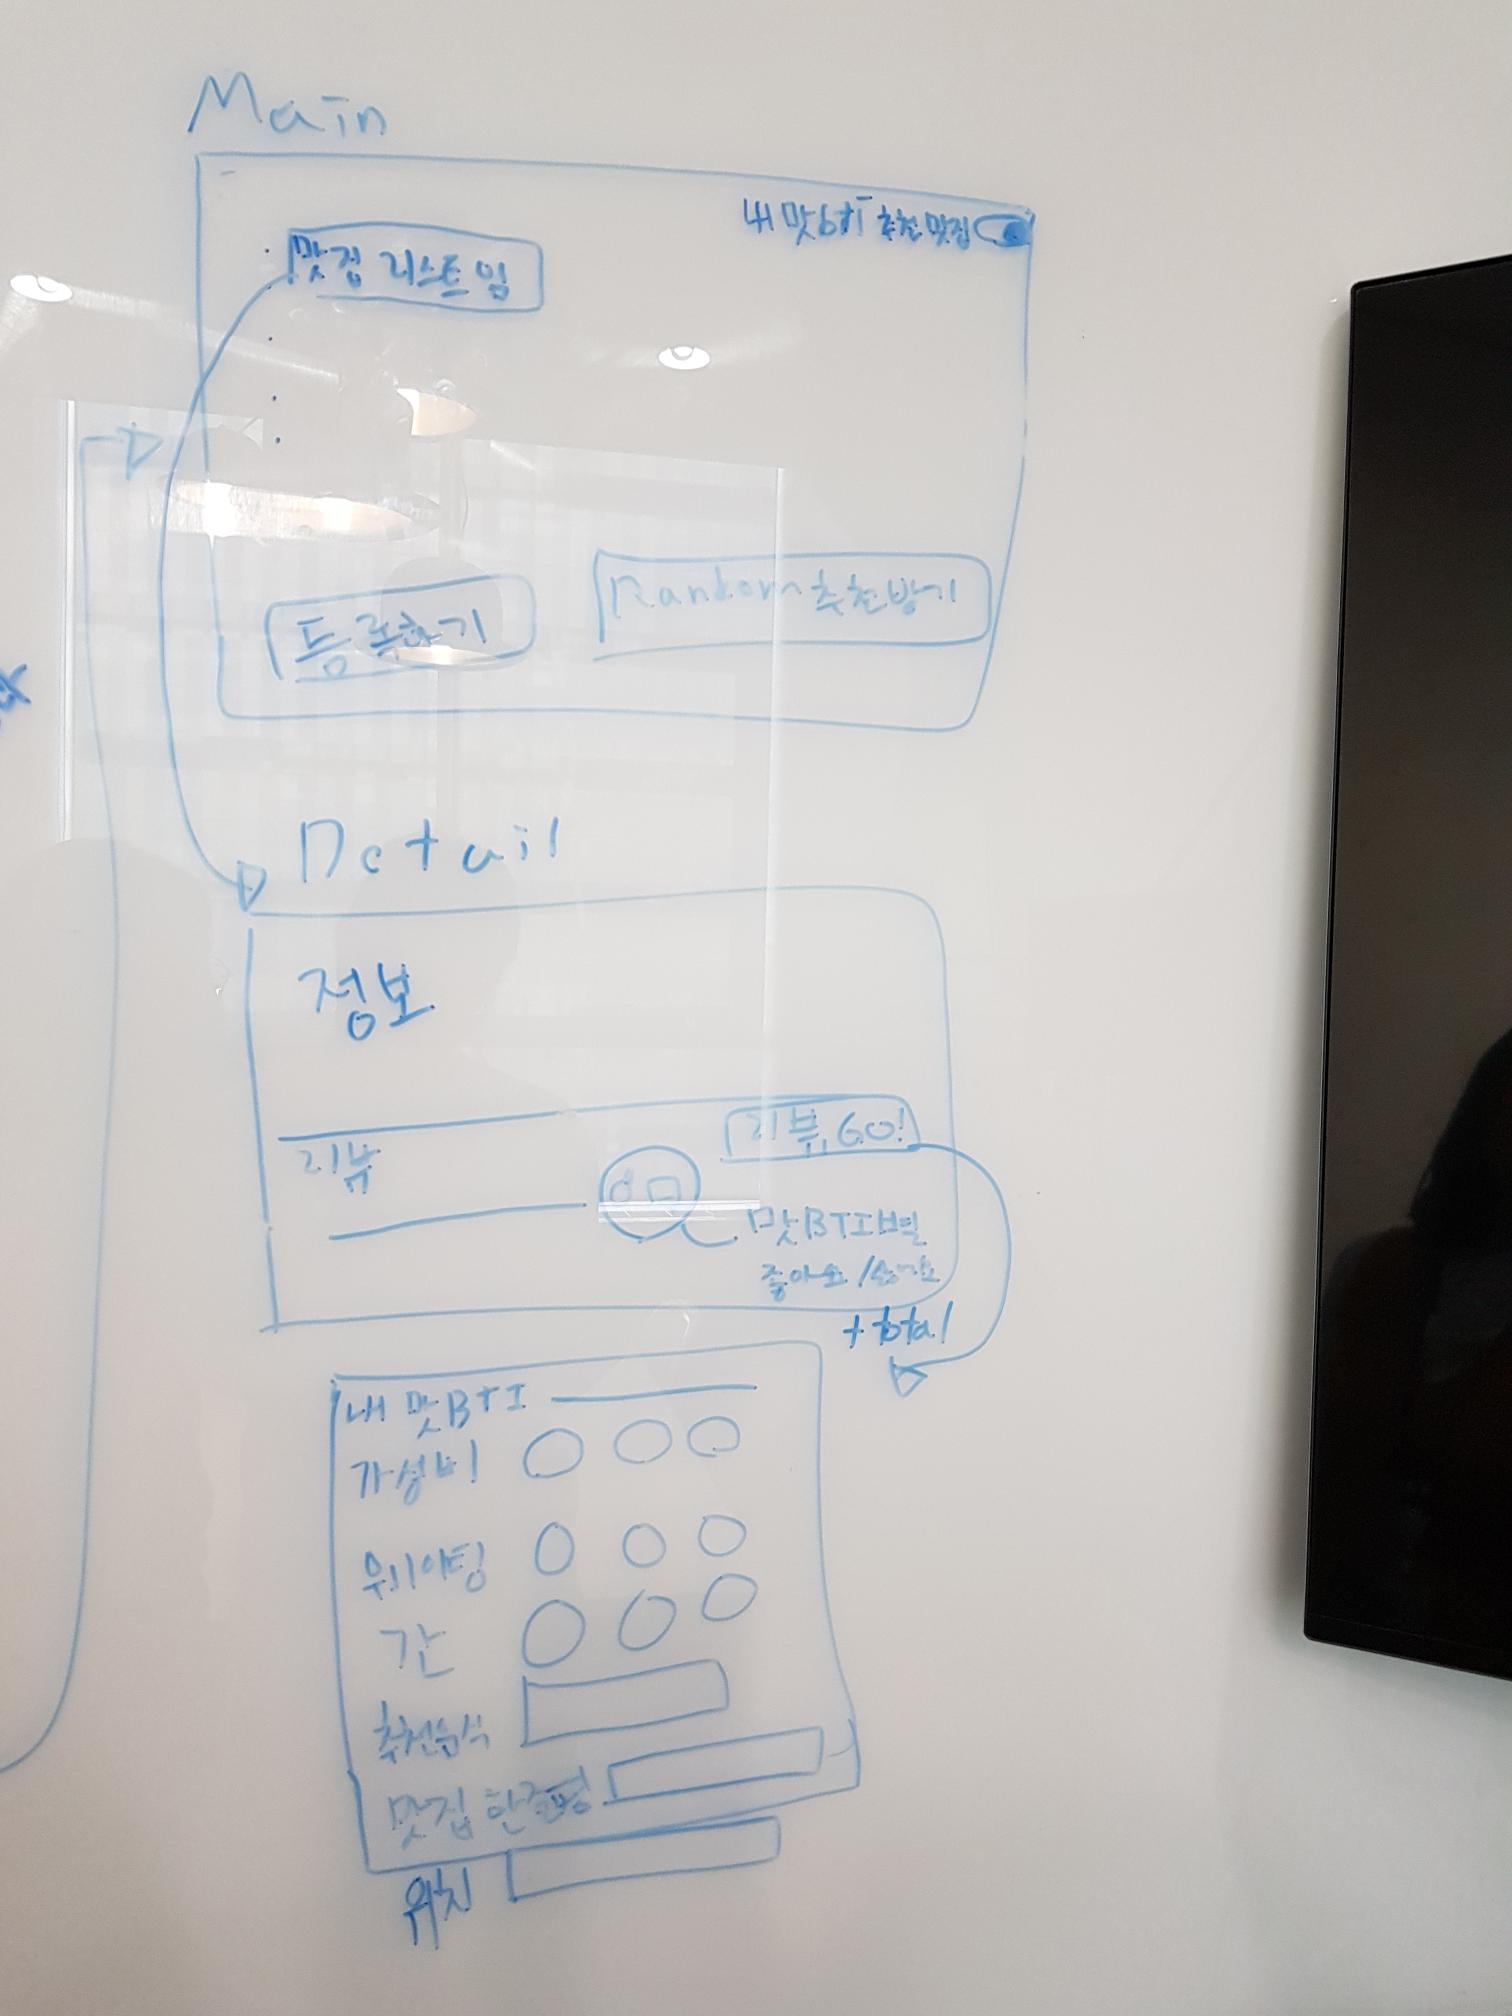 Main
내 맛bti 추천 맛집
맛집 리스트 임
등록하기
Random 추천받기
Detail
정보
리뷰 GO!
리뷰
맛BTI별
좋아요 /
+ total
내 맛BTI
가성비
웨이팅
간
추천음식
맛집 한줄평
위치